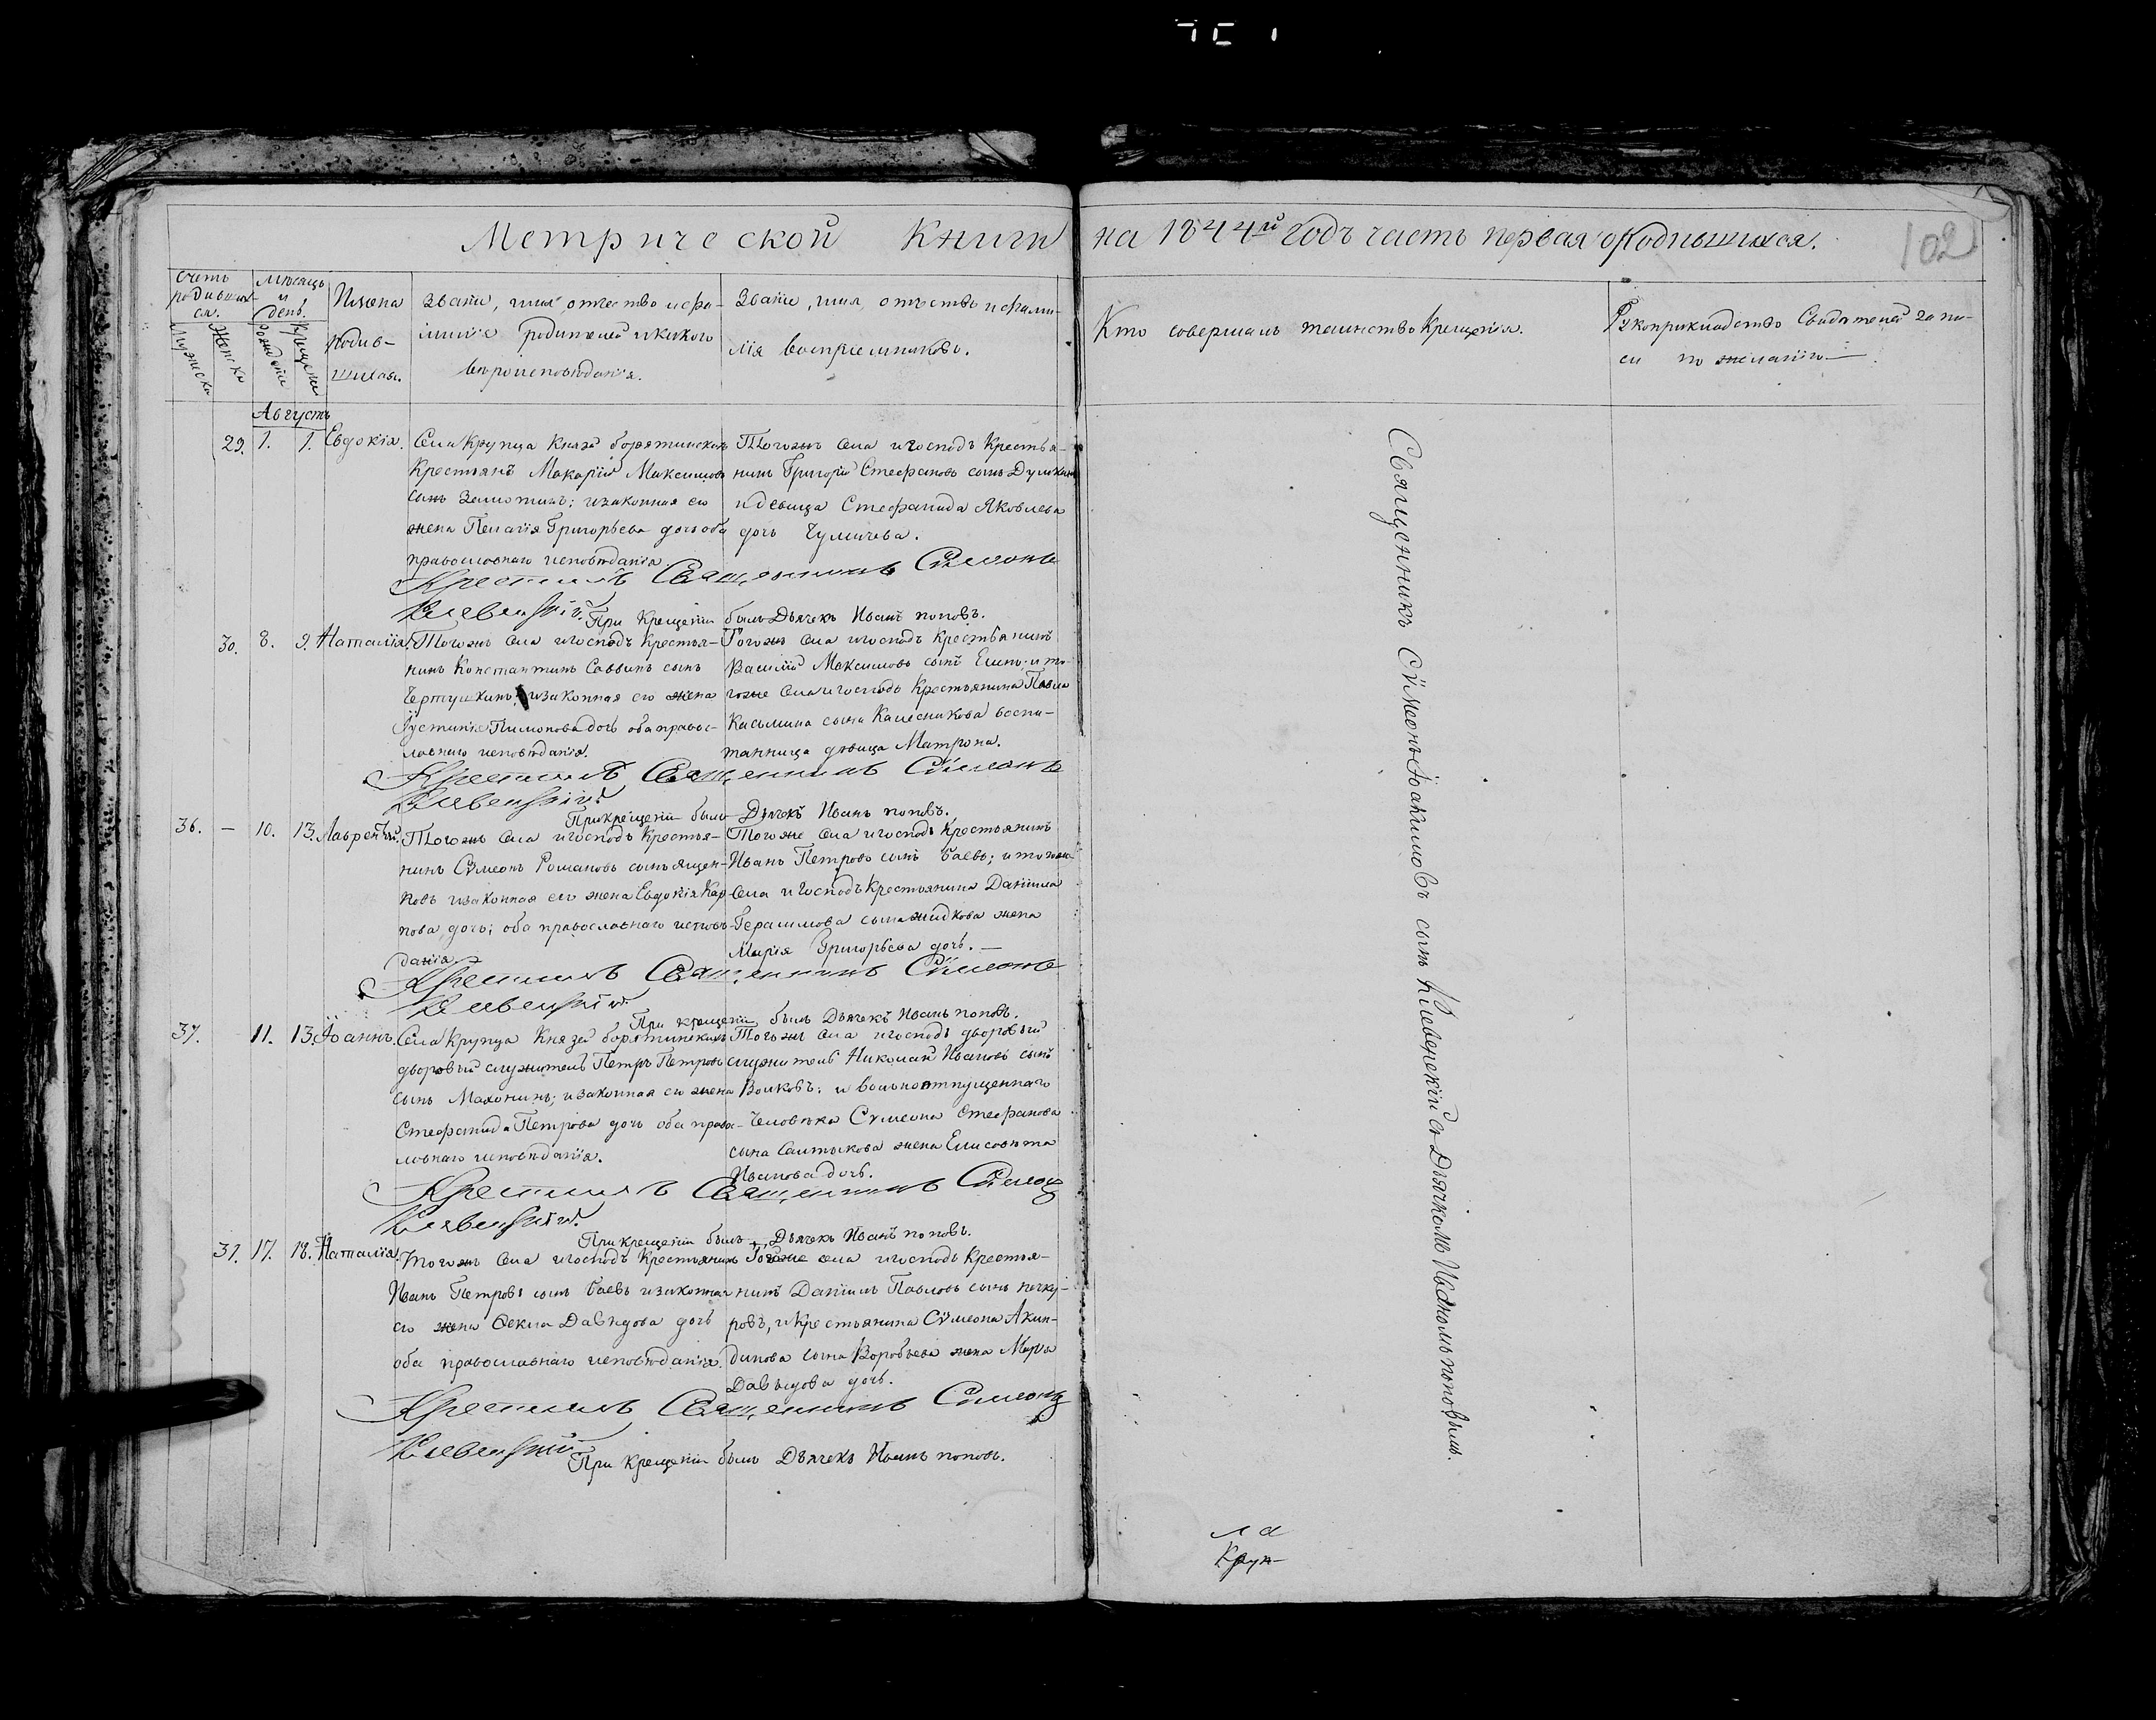 Метрической Книги на 1844й годъ часть первая о Родившихся.
102
Счетъ родившихся.
Мужеска
Женска
Мѣсяцъ и день.
рожденія
Крещенія
Имена родившихся.
Званіе, имя, отчество и фамилія родителей и какого вѣроисповѣданія.
Званіе, имя, отчество и фамилія воспріемниковъ.
Кто совершалъ таинство Крещенія.
Рукоприкладство Свидѣтелей записи по желанію
Августъ
29. 1. 1. Евдокія.
Села Крупца Князей борятинскихъ
Крестьянъ Макарій Максимовъ
сынъ Золотинъ; и законная его
жена Пелагія Григорьева дочь оба
православнаго исповѣданія.
Тогожъ села и господъ Крестья-
нинъ Григорій Стефановъ сынъ
и девица Стефанида Яковлева
дочь Чумичева.
Крестилъ Священникъ Сѵмеонъ
Клевенскій.
При Крещеніи былъ Дьячекъ Иванъ поповъ.
30. 8. 9. Наталія.
Тогожъ села и господъ Крестья-
нинъ Константинъ Саввинъ сынъ
Чертушкинъ; и законная его жена
Іустинія Пимонова дочь оба правос-
лавнаго исповѣданія.
Тогожъ села и господъ Крестьянинъ
Василій Максимовъ сынъ и то-
гоже села и господъ Крестьянина Павла
Касьмина сына Калесникова воспи-
танница дѣвица Матрона.
Крестилъ Священникъ Сѵмеонъ
Клевенскій
При крещеніи былъ Дьячекъ Иванъ поповъ.
36. — 10. 13. Лаврентій.
Тогожъ села и господъ Крестья-
нинъ Сѵмеонъ Романовъ сынъ Ящен-
ковъ и законная его жена Евдокія Кар-
пова дочь; оба православнаго исповѣ-
данія.
Тогоже села и господъ Крестьянинъ
Иванъ Петровъ сынъ Баевъ; и тогоже
села и господъ Крестьянина Даніила
Герасимова сына жидкова жена
Марія Григорьева дочь. —
Крестилъ Священникъ Сѵмеонъ
Клевенскій
При крещеніи былъ Дьячекъ Иванъ поповъ.
37. 11. 13. Іоаннъ.
Села Крупца Князей борятинскихъ
дворовый служитель Петръ Петровъ
сынъ Махонинъ; и законная его жена
Стефанида Петрова дочь оба право-
лавнаго исповѣданія.
Тогожъ села и господъ дворовый
служитель Николай Ивановъ сынъ
Волковъ; и вольноотпущеннаго
человѣка Сѵмеона Стефанова
сына Салтыкова жена Елисовѣта
Иванова дочь.
Крестилъ Священникъ Сѵмеонъ
Клевенскій.
При крещеніи былъ Дьячекъ Иванъ поповъ.
31. 17. 18. Наталія.
Тогожъ села и господъ Крестьянинъ
Иванъ Петровъ сынъ Баевъ и законная
его жена Ѳекла Давидова дочь
оба православнаго исповѣданія.
Тогоже села и господъ Крестья-
нинъ Даніилъ Павловъ сынъ печку-
ровъ, и Крестьянина Сѵмеона Акин-
динова сына Воробьева жена Марѳа
Давыдова дочь.
Крестилъ Священникъ Сѵмеонъ
Клевенскій
При Крещеніи былъ Дьячекъ Иванъ поповъ.
Священникъ Сѵмеонъ Іоакимовъ сынъ Клевенскій съ Дьячкомъ Иваномъ поповымъ.
ла
Круп-